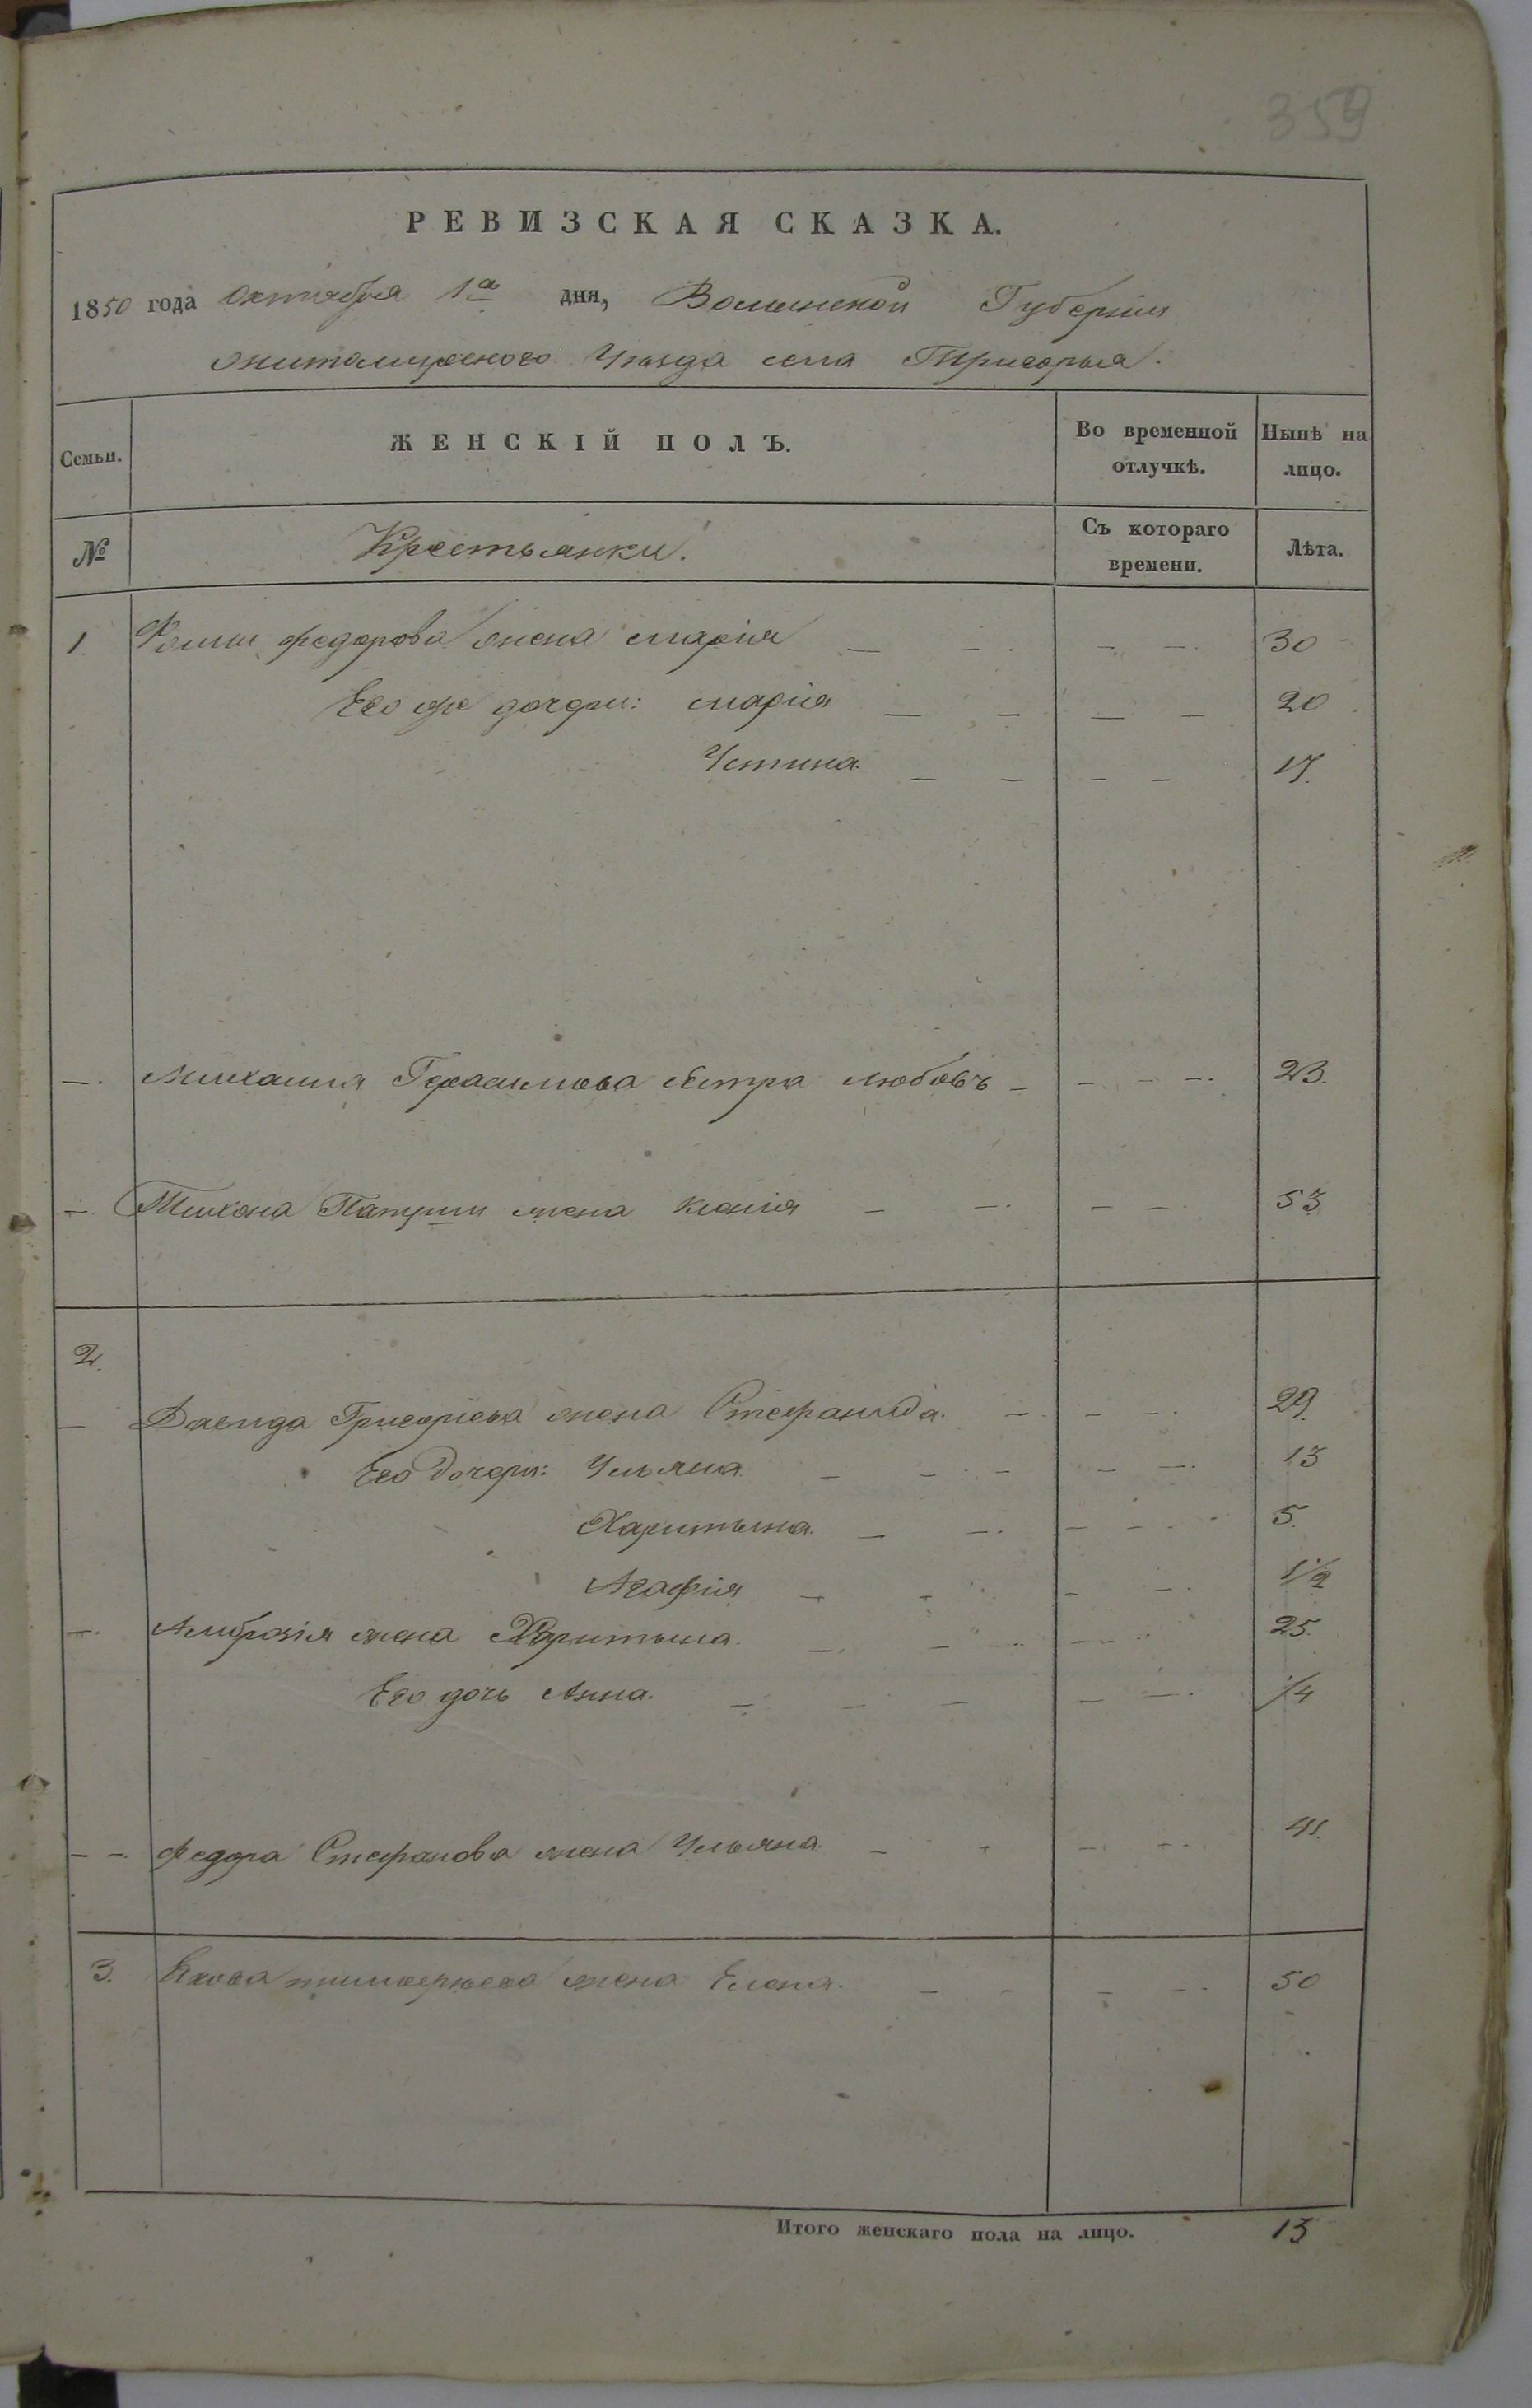 359
РЕВИЗСКАЯ СКАЗКА.
1850 года Октября 1го дня, Волынской Губерніи
Житомирского Уезда села Тригорья.
Семьи. ЖЕНСКІЙ ПОЛЪ. Во временной отлучкѣ. Нынѣ на лицо.
№ Крестьянки. Съ котораго времени. Лѣта.
1 Фомы Федорова жена Марія — — . — — . 30
Его же дочери: Марія — — — — 20
Устина. — — — — 17.
— . Михаила Герасимова сестра Любовъ — — — — . 23.
— . Тихона жена Ксенія — — . — — . 53
2.
— Давида Григоріева жена Стефанида. — — — . 29
Его дочери: Ульяна — — — — — . 13
Харитына. — — . — — - 5.
Агафія — — — — . 1½
— . Амброзія жена Харитына. — — — — — 25.
Его дочь Анна. — — — — — . ¼
— — . Федора Стефанова жена Ульяна — — — — . 41.
3. Якова Тимофеева жена Елена. — - — — . 50
Итого женскаго пола на лицо. 13